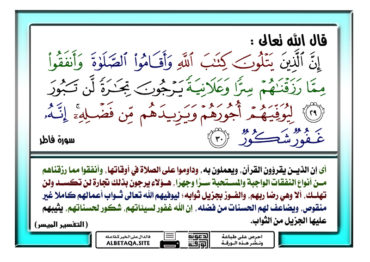 قال الله تعالى :
إِنَّ ٱلَّذِينَ يَتْلُونَ كِتَٰبَ ٱللَّهِ وَأَقَامُوا۟ ٱلصَّلَوٰةَ وَأَنفَقُوا۟
مِمَّا رَزَقْنَٰهُمْ سِرًّا وَعَلَانِيَةً يَرْجُونَ تِجَٰرَةً لَّن تَبُورَ
﴿٢٩﴾ لِيُوَفِّيَهُمْ أُجُورَهُمْ وَيَزِيدَهُم مِّن فَضْلِهِۦٓ ۚ إِنَّهُۥ
غَفُورٌ شَكُورٌ ﴿٣٠﴾ سورة فاطر
أي إن الذين يقرؤون القرآن، ويعملون به، وداوموا على الصلاة في أوقاتها، وأنفقوا مما رزقناهم
من أنواع النفقات الواجبة والمستحبة سرًا وجهرًا، هؤلاء يرجون بذلك تجارة لن تكسد ولن
تهلك، ألا وهي رضا ربهم، والفوز بجزيل ثوابه؛ ليوفيهم الله تعالى ثواب أعمالهم كاملا غير
منقوص، ويضاعف لهم الحسنات من فضله، إن الله غفور لسيئاتهم، شكور لحسناتهم، يثيبهم
عليها الجزيل من الثواب. (التفسير الميسر)
احرص على طباعة
ونشر هذه الورقة
الدال على الخير كفاعله
ALBETAQA.SITE